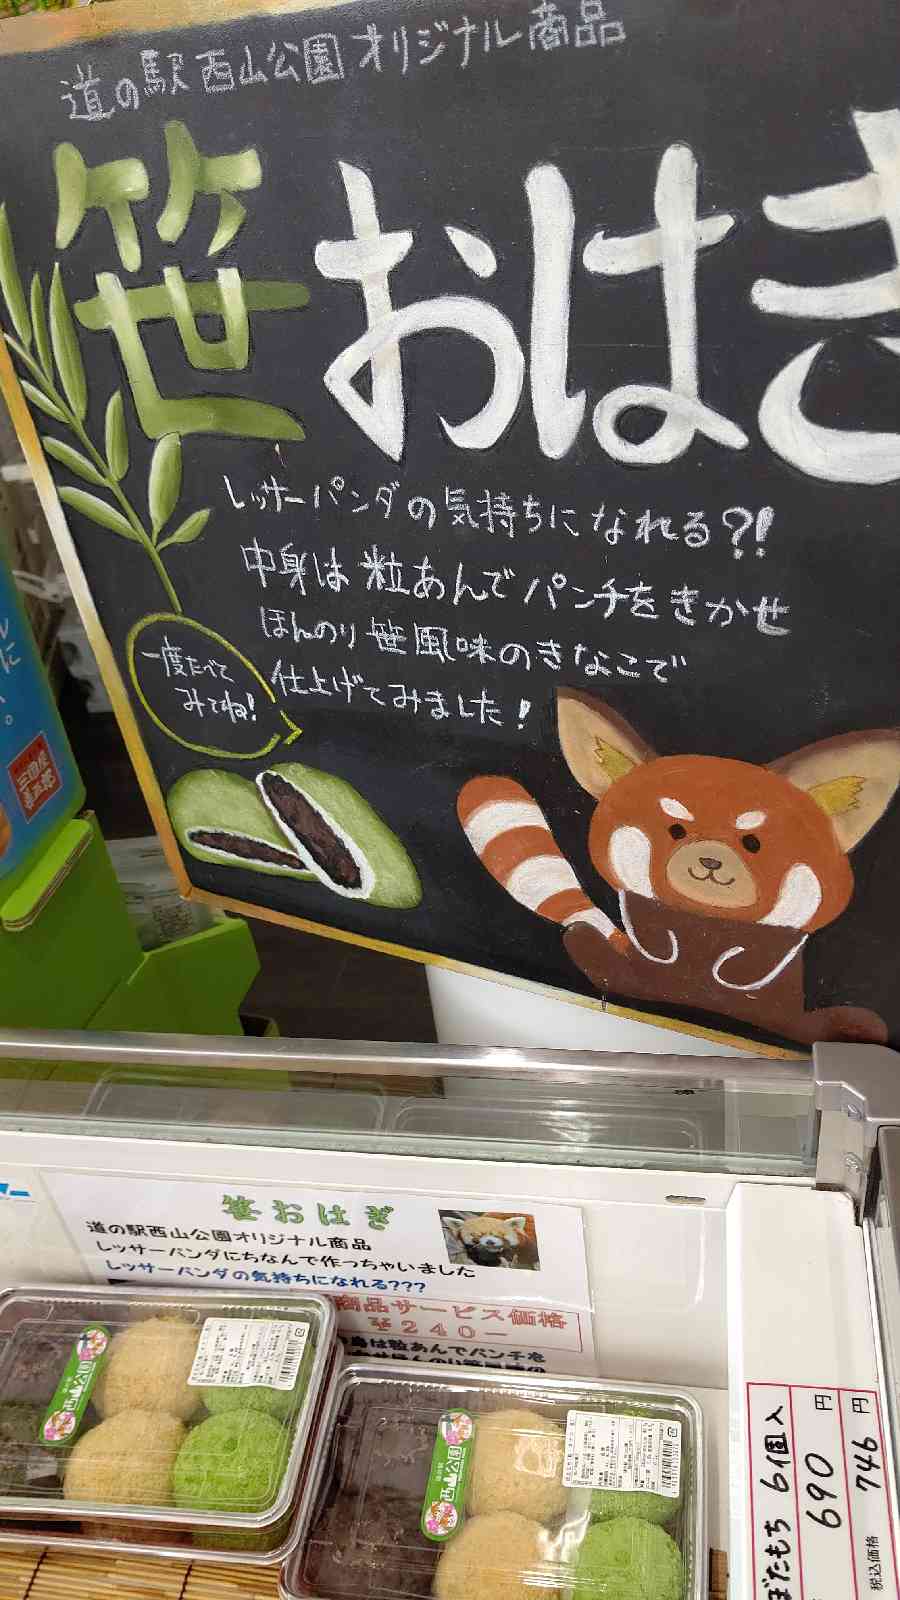 道の駅西山公園オリジナル商品
笹おはぎ
レッサーパンダの気持ちになれる?!
中身は粒あんでパンチをきかせ
ほんのり笹風味のきなこで
仕上げてみました!
一度たべて
みてね!
笹おはぎ
道の駅西山公園オリジナル商品
レッサーパンダにちなんで作っちゃいました
レッサーパンダの気持ちになれる???
商品サービス価格
¥240ー
は粒あんでパンチを
西山公園
西山公園
ぼたもち 6個入
690円
税込価格 746円